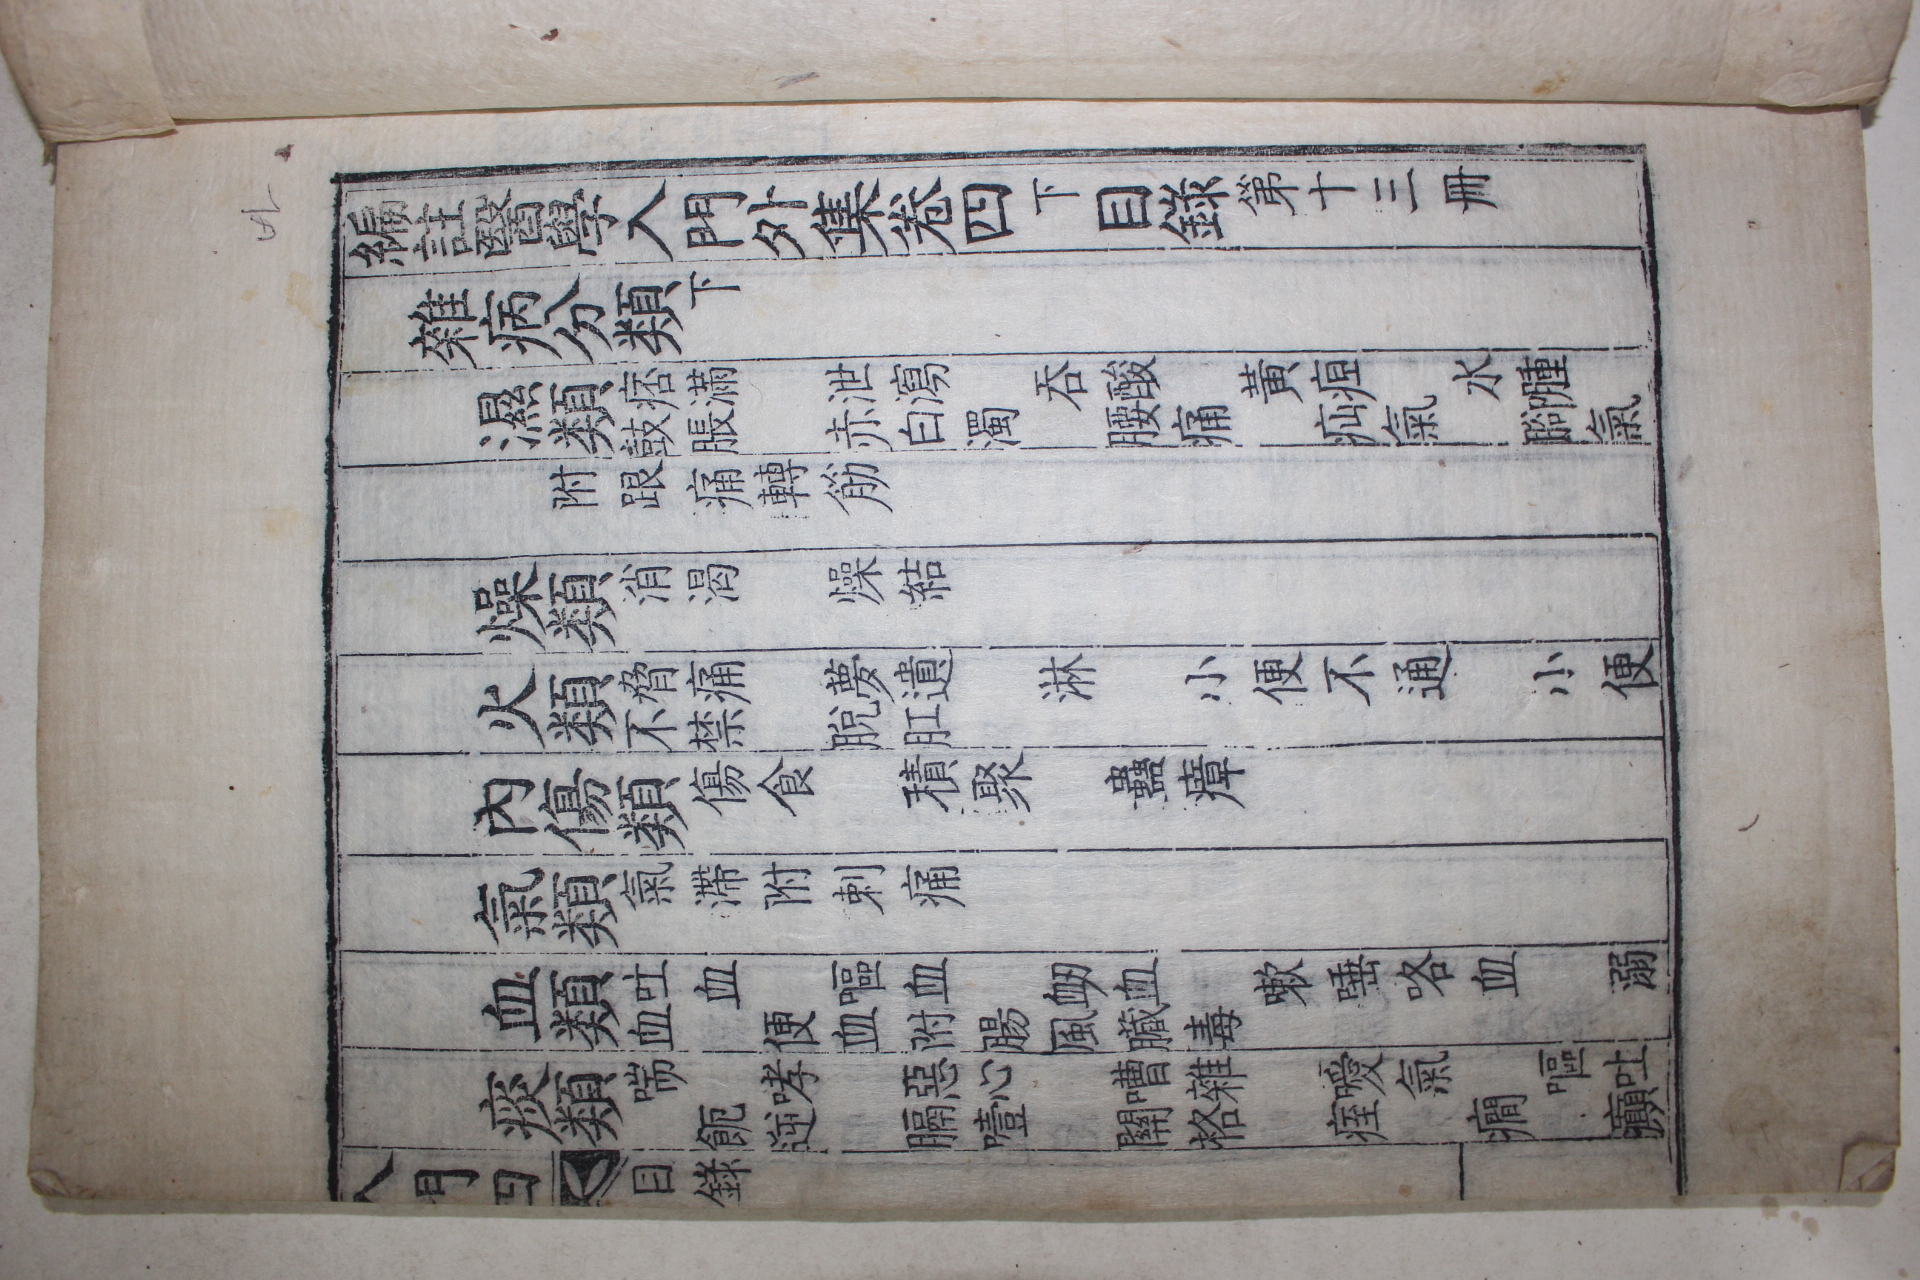 編註醫學入門外集卷四下目錄第十三冊
雜病分類下
濕類 痞滿 泄瀉 吞酸 黃疸 水腫
鼓脹 赤白濁 腰痛 疝氣 腳氣
附跟痛轉筋
燥類 消渴 燥結
火類 脅痛 夢遺 淋 小便不通 小便
不禁 脫肛
內傷類 傷食 積聚 蠱瘴
氣類 氣滯附刺痛
血類 吐血 嘔血 衄血 嗽唾咯血 溺
血 便血附腸風臟毒
痰類 喘 哮 惡心 嘈雜 噯氣 嘔吐
逆 膈噎 關格 痓 癇 癲
入門四 目錄